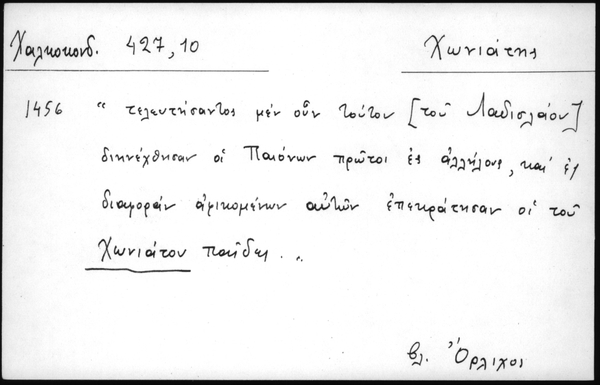 Χαλκοκονδ. 427,10 Χωνιάτης
1456 " τελευτήσαντος μέν οὖν τούτου [τοῦ Λαδισλάου]
διηνέχθησαν οἱ Παιόνων πρῶτοι ἐς ἀλλήλους, καί ἐς
διαφοράν ἀφικομένων αὐτῶν ἐπεκράτησαν οἱ τοῦ
Χωνιάτου παῖδες. "
βλ. Ὄρλιχος